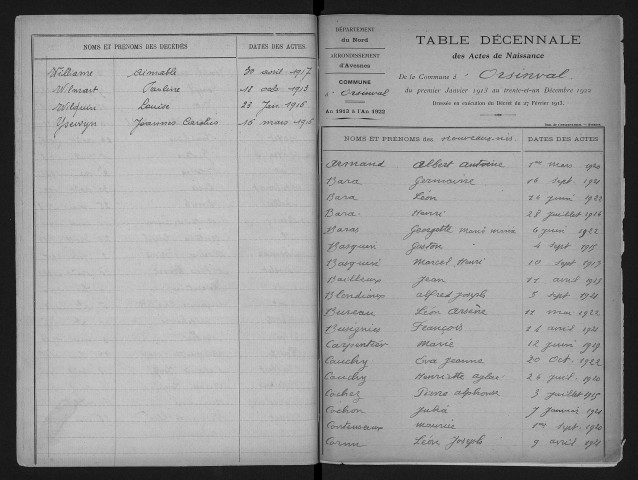 NOMS ET PRÉNOMS DES DÉCÉDÉS DATES DES ACTES.
Williame Aimable 30 avril 1917
Pauline 18 octo. 1913
Louise 23 Juin 1916
Joannes Carolus 16 mars 1916
DÉPARTEMENT
du Nord
ARRONDISSEMENT
d'Avesnes
COMMUNE
d'Orsinval
An 1913 à l'An 1922
TABLE DÉCENNALE
des Actes de Naissance
De la Commune d'Orsinval
du premier Janvier 1913 au trente-et-un Décembre 1922
Dressée en exécution du Décret du 27 Février 1913.
NOMS ET PRÉNOMS des nouveaux-nés DATES DES ACTES
Armand Albert Antoine 1er mars 1920
Bara Germaine 16 sept. 1921
Bara Léon juin 1922
Bara Henri 28 juillet 1916
Baras Georgette marie 6 juin 1922
Basquin Gaston 4 sept 1915
Marcel Henri 10 sept 1913
Bailleux Jean 11 avril 1913
Alfred Joseph 3 sept 1921
Bureau Léon 11 mai 1922
Busignies François 12 avril 1921
Carpentier Marie 12 juin 1919
Cauchy Eva Jeanne 20 Oct. 1922
Cauchy Henriette 26 juil. 1920
Cochez alphonse 3 juillet 1915
Cochon Julia 7 janvier 1921
maurice 1er sept. 1920
Cornu Léon Joseph 9 avril 1921